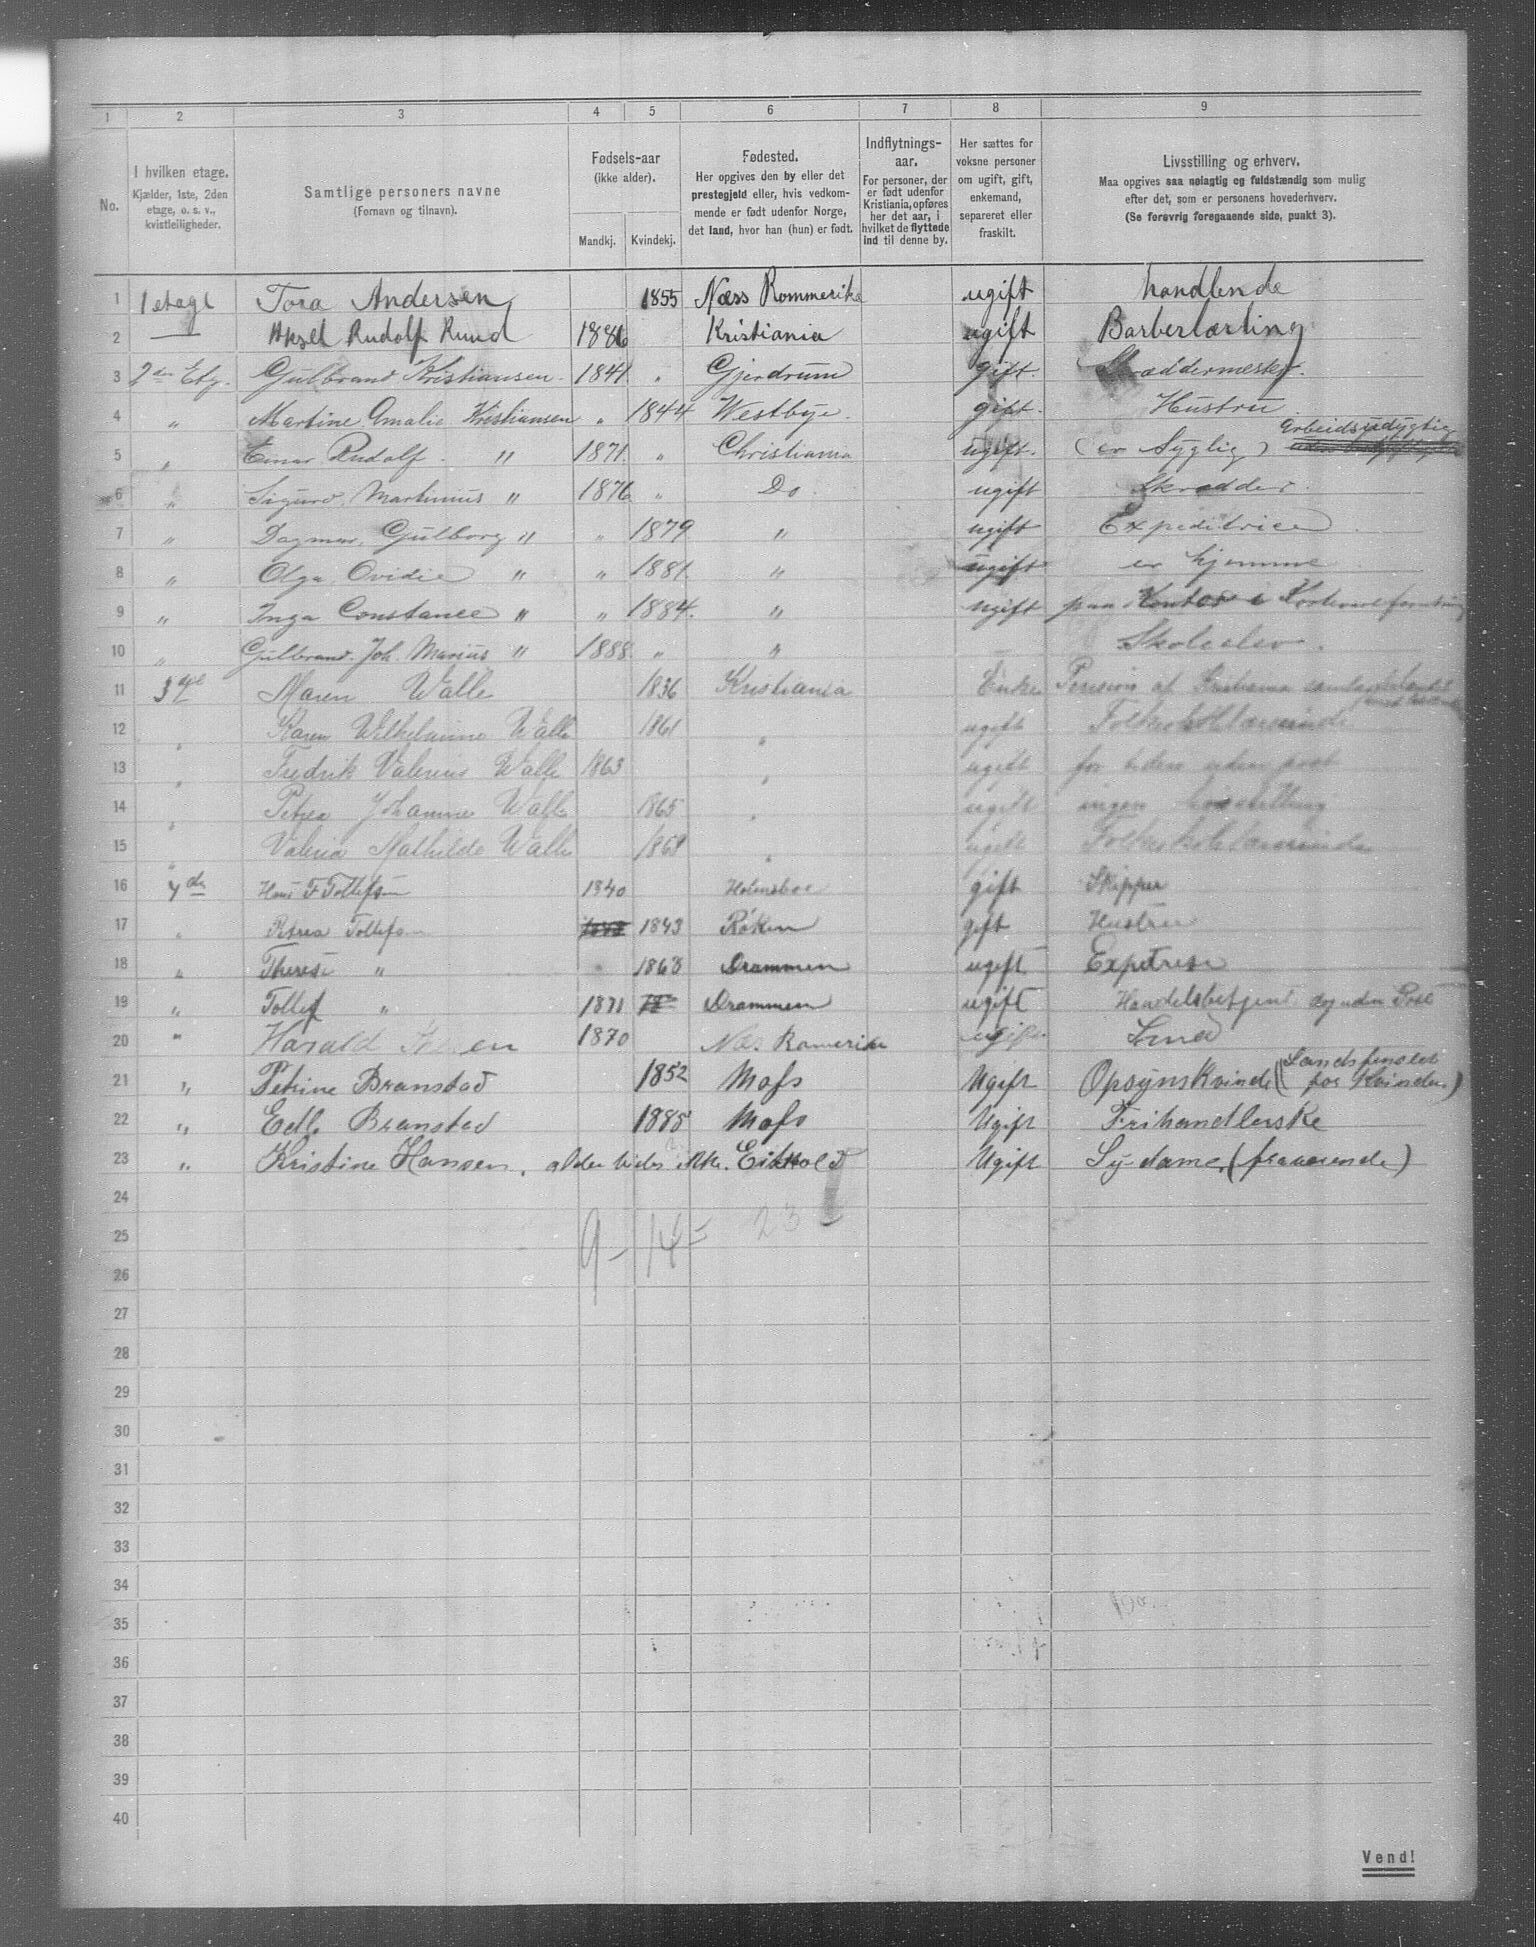 1 2 3 4 5 6 7 8 9
No.
I hvilken etage.
Kjælder, 1ste, 2den
etage, o. s. v.,
kvistleiligheder.
Samtlige personers navne
(Fornavn og tilnavn).
Fødsels-aar
(ikke alder).
Mandkj. Kvindekj.
Fødested.
Her opgives den by eller det
prestegjeld eller, hvis vedkom-
mende er født udenfor Norge,
det land, hvor han (hun) er født.
Indflytnings-
aar.
For personer, der
er født udenfor
Kristiania, opføres
her det aar, i
hvilket de flyttede
ind til denne by.
Her sættes for
voksne personer
om ugift, gift,
enkemand,
separeret eller
fraskilt.
Livsstilling og erhverv.
Maa opgives saa nøiagtig og fuldstændig som mulig
efter det, som er personens hovederhverv.
(Se forøvrig foregaaende side, punkt 3).
1 1 etage Tora Andersen 1855 Næss Rommerike ugift handlende
2 — Aksel Rudolf Ruud 1886 Kristiania ugift Barberlærling
3 2den Etg. Gulbrand Kristiansen 1841 " Gjerdrum gift. Skræddermester.
4 " Martine Amalie Kristiansen " 1844 Westbye. gift. Hustru
5 " Einar Rudolf " 1871. " Christiania ugift. (er Syglig) Arbeidsudygtig
6 " Sigurd. Martinius " 1876 " Do. ugift Skrædder.
7 " Dagmar. Gulborg " " 1879 " ugift Expeditrice
8 " Olga Ovidie " " 1881. " ugift er hjemme
9 " Inga Constance " " 1884. " ugift paa Kontor i
10 " Gulbrand. Joh. Marius " 1888. " " Skoleelev.
11 3 Maren Walle 1836 Kristiania Enke Pension af Kristiania
12 " Karen Wilhelmine Walle 1861 " ugift Folkeskolelærerinde
13 " Fredrik Valerius Walle 1863 " ugift for tiden uden post
14 " Petrea Johanne Walle 1865 " ugift ingen
15 " Valeria Mathilde Walle " ugift Folkeskolelærerinde
16 4de Hans F Tollefsen 1840 Holmsboe gift Skipper
17 " Petrea Tollefsen 1843 Røken gift Hustru
18 " Therese " 1868 Drammen ugift Expetrise
19 " Tollef " 1871 Drammen ugift Handelsbetjent uden Post
20 " Harald 1870 Næs Romerike ugift Smed
21 " Petrine Branstad 1852 Moss Ugift Opsynskvinde (Landsfengslet
for Kvinder)
22 " Edl. Branstad 1885 Moss Ugift Frihandlerske
23 " Kristine Hansen. Ugift Sydame. (fraværende)
24
9 - 14 = 23
25
26
27
28
29
30
31
32
33
34
35
36
37
38
39
40
Vend!